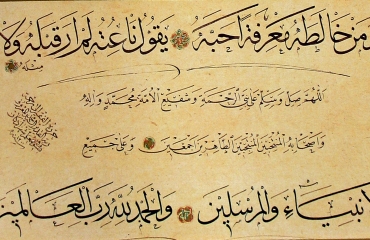 ومن خالطه معرفة احبه يقول ناعته لم ار قبله ولا
مثله
اللهم صل وسلم على نبي الرحمة وشفيع الامة محمد واله
واصحابه اجمعين وعلى جميع
الانبياء والمرسلين والحمد لله رب العالمين